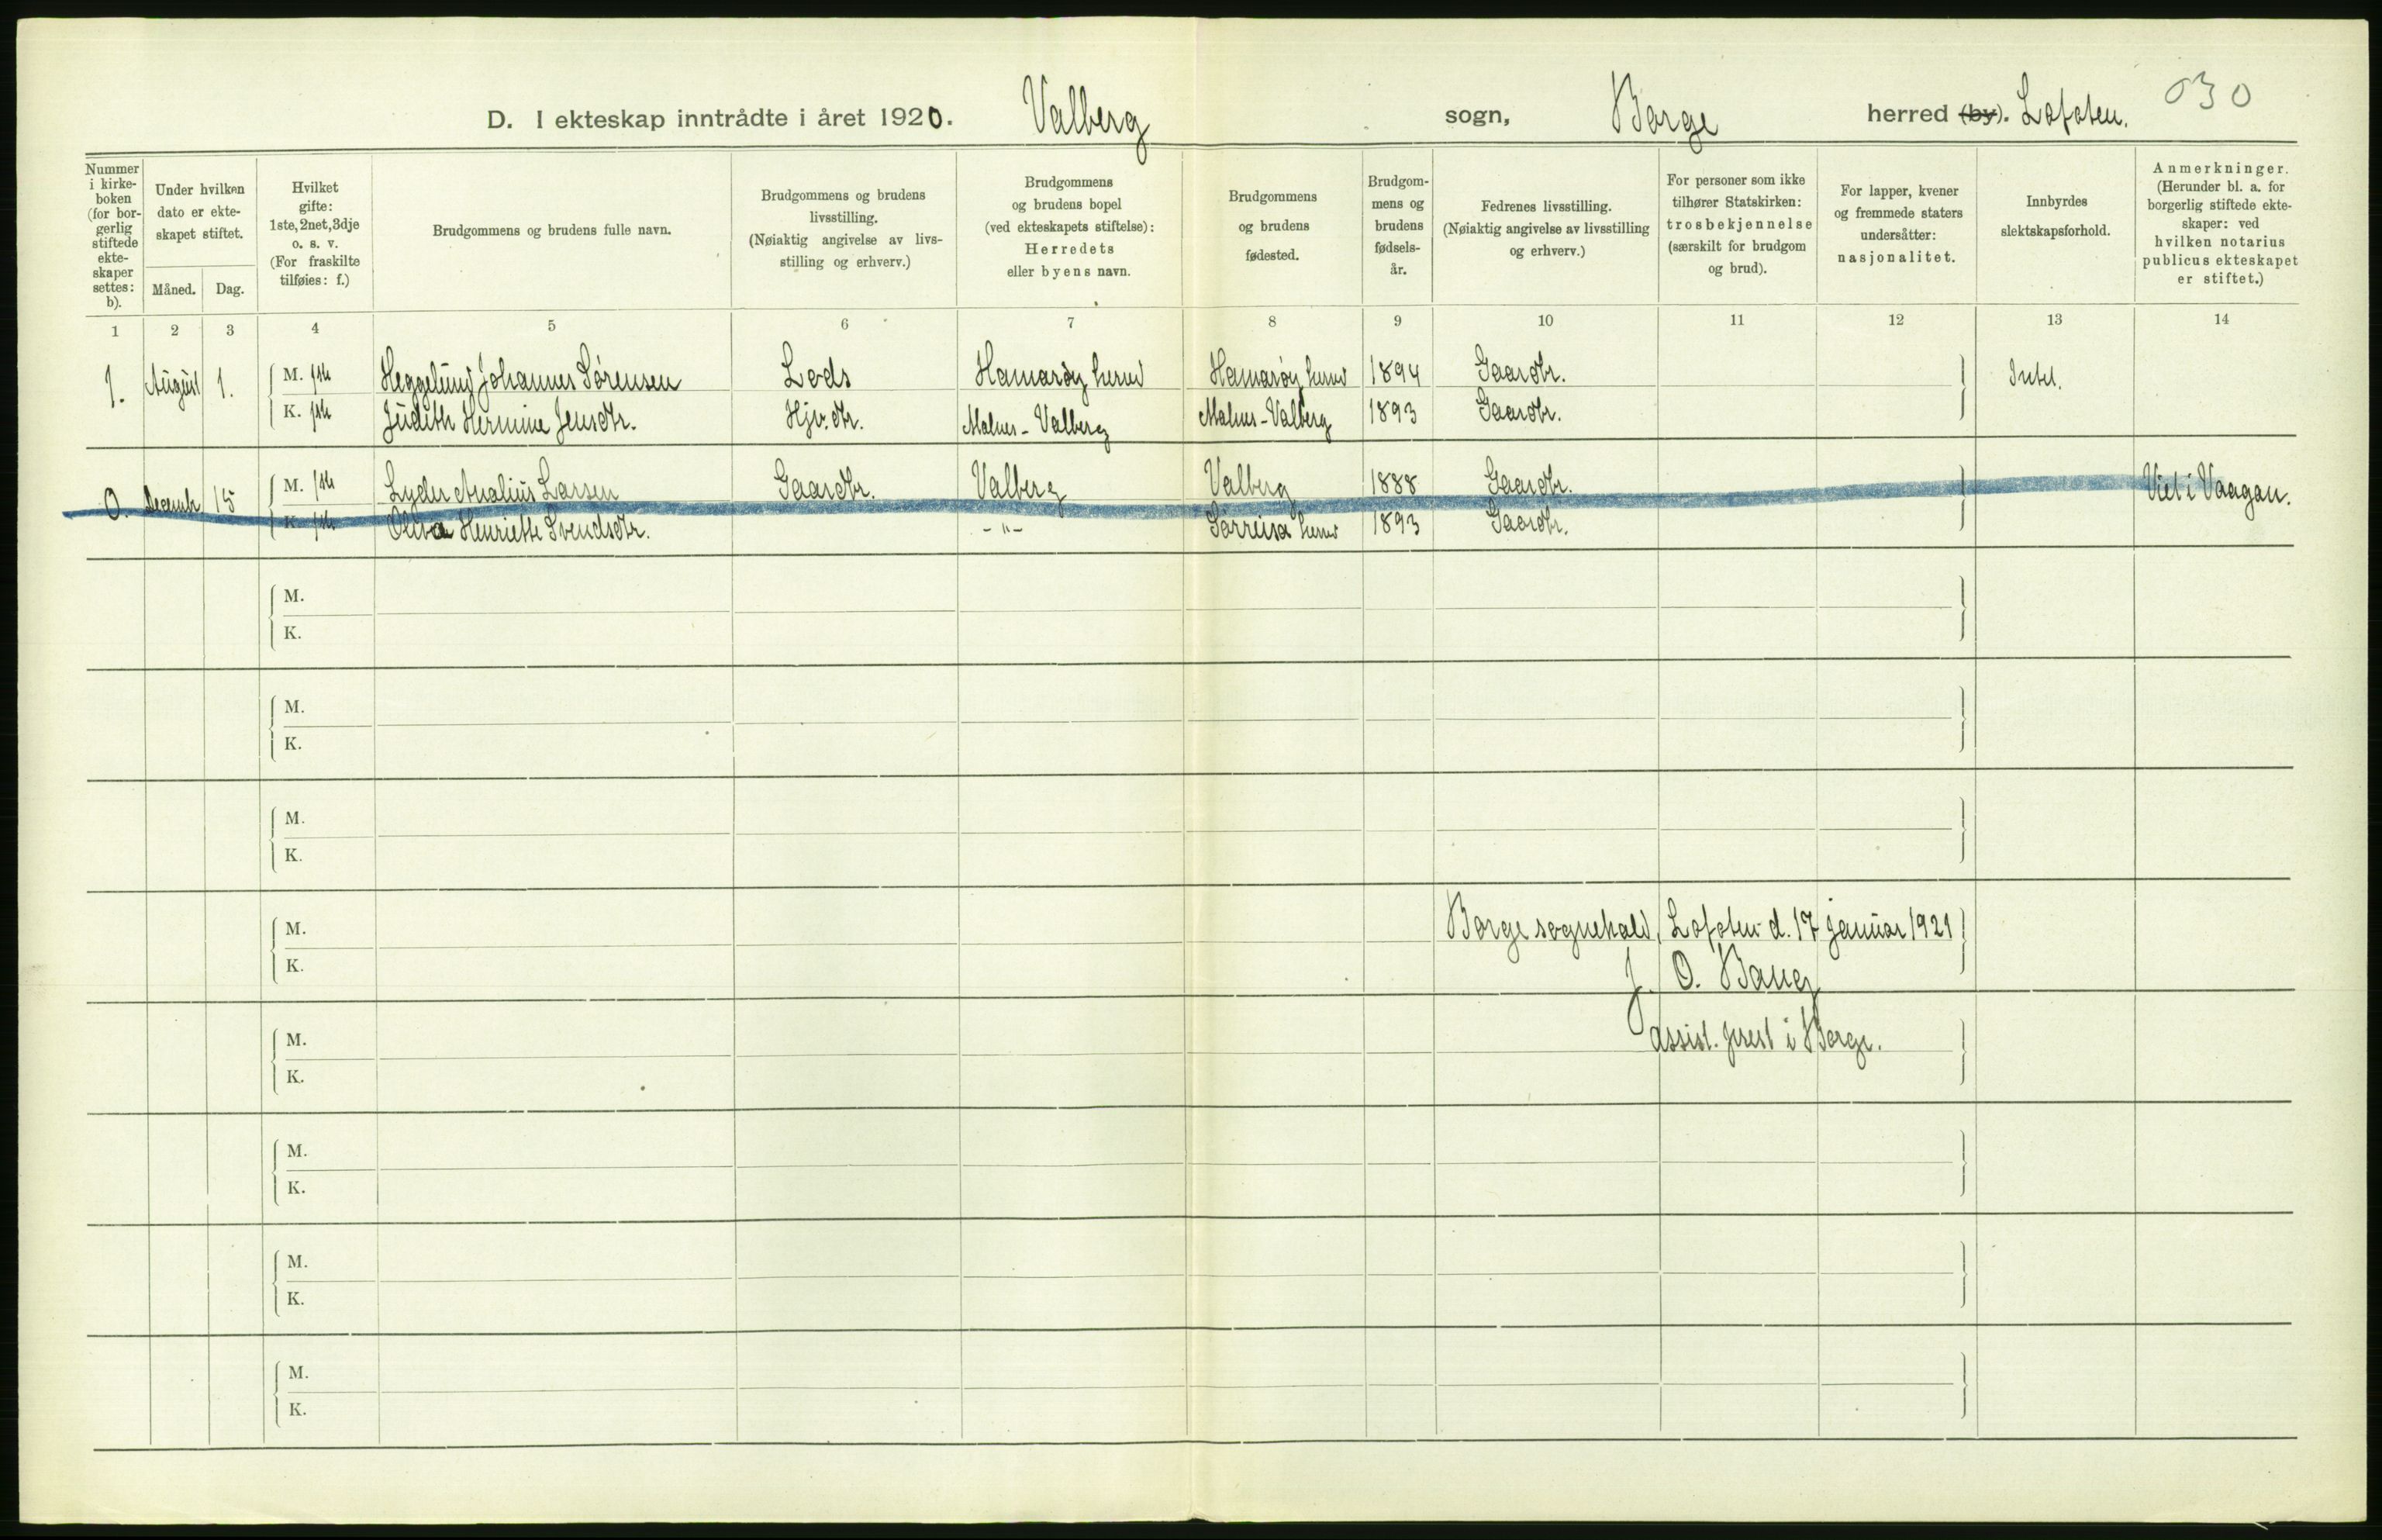 030
D. I ekteskap inntrådte i året 1920. Valberg sogn, Borge herred (by). Lofoten.
Nummer i kirkeboken (for borgerlig stiftede ekteskaper settes: b).
Under hvilken dato er ekteskapet stiftet.
Måned. Dag.
Hvilket gifte: 1ste, 2net, 3dje o. s. v. (For fraskilte tilføies: f.)
Brudgommens og brudens fulle navn.
Brudgommens og brudens livsstilling. (Nøiaktig angivelse av livsstilling og erhverv.)
Brudgommens og brudens bopel (ved ekteskapets stiftelse): Herredets eller byens navn.
Brudgommens og brudens fødested.
Brudgommens og brudens fødselsår.
Fedrenes livsstilling. (Nøiaktig angivelse av livsstilling og erhverv.)
For personer som ikke tilhører Statskirken: trosbekjennelse (særskilt for brudgom og brud).
For lapper, kvener og fremmede staters undersåtter: nasjonalitet.
Innbyrdes slektskapsforhold.
Anmerkninger. (Herunder bl. a. for borgerlig stiftede ekteskaper: ved hvilken notarius publicus ekteskapet er stiftet.)
1 2 3 4 5 6 7 8 9 10 11 12 13 14
1. August 1. M. 1ste Heggelund Johannes Sørensen Lods Hamarøy herred Hamarøy herred 1894 Gaardbr. Intet.
K. 1ste Judith Hermine Jensdtr. Hjv. dtr. Malnes-Valberg Malnes-Valberg 1893 Gaardbr.
0. Decemb 15 M. 1ste Lyder Analius Larsen Gaardbr. Valberg Valberg 1888 Gaardbr. Viet i Vaagan.
K. 1ste Henriette Svendsdtr. -"- Sørreisa herred 1893 Gaardbr.
M.
K.
M.
K.
M.
K.
M. Borge sognekald, Lofoten d. 17 januar 1921
K. J. O.
M. assist. prest i Borge.
K.
M.
K.
M.
K.
M.
K.